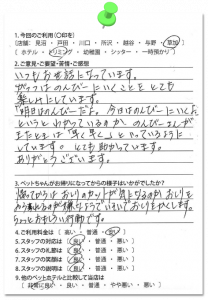 1.今回のご利用(〇印を)
(店舗: 見沼 ・ 戸田 ・ 川口 ・ 所沢 ・ 越谷 ・ 与野 ・ 草加)
(ホテル ・ トリミング ・ 幼稚園 ・ シッター ・ 一時預かり)
2.ご意見・ご要望・苦情・ご感想
いつもお世話になっています。
のんびーにいくことをとても
楽しみにしています。
明日はのんびーだよ。今日はのんびーにいくよ。
というと
またときは 早く早くとやっているように
しています。 とても助かっています。
ありがとうございます。
3.ペットちゃんがお帰りになってからの様子はいかがでしたか?
帰ってからはおしりのカットが気になるのかおしりを
ちょっとおもしろい行動です。
4.ご利用料金は ( 高い ・ 普通 ・ 安い )
5.スタッフの対応は ( 良い ・ 普通 ・ 悪い )
5.スタッフの礼節は ( 良い ・ 普通 ・ 悪い )
5.スタッフの笑顔は ( 良い ・ 普通 ・ 悪い )
5.スタッフの説明は ( 良い ・ 普通 ・ 悪い )
6.他のペットホテルと比較して当店は
(非常に良い ・ 良い ・ 普通 ・ やや悪い ・ 悪い )